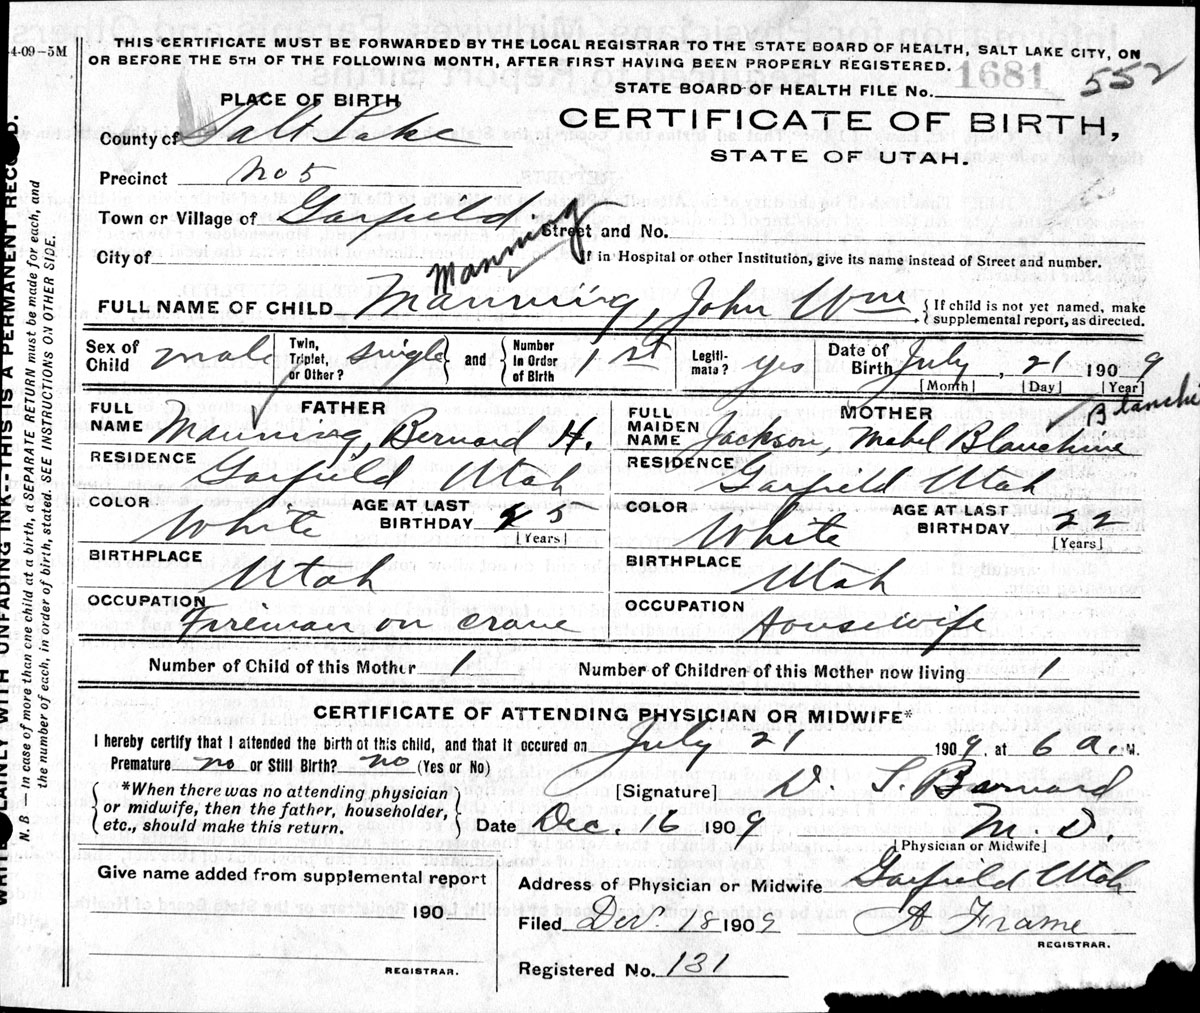 4-09-5M
THIS CERTIFICATE MUST BE FORWARDED BY THE LOCAL REGISTRAR TO THE STATE BOARD OF HEALTH, SALT LAKE CITY, ON
OR BEFORE THE 5TH OF THE FOLLOWING MONTH, AFTER FIRST HAVING BEEN PROPERLY REGISTERED.
1681
552
STATE BOARD OF HEALTH FILE No.
PLACE OF BIRTH
CERTIFICATE OF BIRTH,
STATE OF UTAH.
County of Salt Lake
Precinct No 5
Town or Village of Garfield
Street and No.
City of
If in Hospital or other Institution, give its name instead of Street and number.
Manning
Manning
FULL NAME OF CHILD Manning, John Wm
{ If child is not yet named, make
supplemental report, as directed.
Sex of Child male
Twin, Triplet, or Other? single } and { Number In Order of Birth 1st
Legiti-mate? yes
Date of Birth July, 21 1909
[Month] [Day] [Year]
FATHER
FULL NAME Manning, Bernard H.
RESIDENCE Garfield Utah
COLOR White
AGE AT LAST BIRTHDAY 25
[Years]
BIRTHPLACE Utah
OCCUPATION Fireman on crane
MOTHER
Blanche
FULL MAIDEN NAME Jackson, Mabel Blanchine
RESIDENCE Garfield Utah
COLOR White
AGE AT LAST BIRTHDAY 22
[Years]
BIRTHPLACE Utah
OCCUPATION Housewife
Number of Child of this Mother 1
Number of Children of this Mother now living 1
CERTIFICATE OF ATTENDING PHYSICIAN OR MIDWIFE*
I hereby certify that I attended the birth of this child, and that it occured on July 21 1909, at 6 a. M.
Premature no or Still Birth? no (Yes or No)
{ *When there was no attending physician
or midwife, then the father, householder,
etc., should make this return. }
[Signature] D. S. Barnard
M. D.
Date Dec. 16 1909
[Physician or Midwife]
Give name added from supplemental report
190
REGISTRAR.
Address of Physician or Midwife Garfield Utah
Filed Dec. 18 1909
A Frame
REGISTRAR.
Registered No. 131
PLAINLY WITH UNFADING INK---THIS IS A PERMANENT RECORD.
N. B — In case of more than one child at a birth, a SEPARATE RETURN must be made for each, and
the number of each, in order of birth, stated. SEE INSTRUCTIONS ON OTHER SIDE.